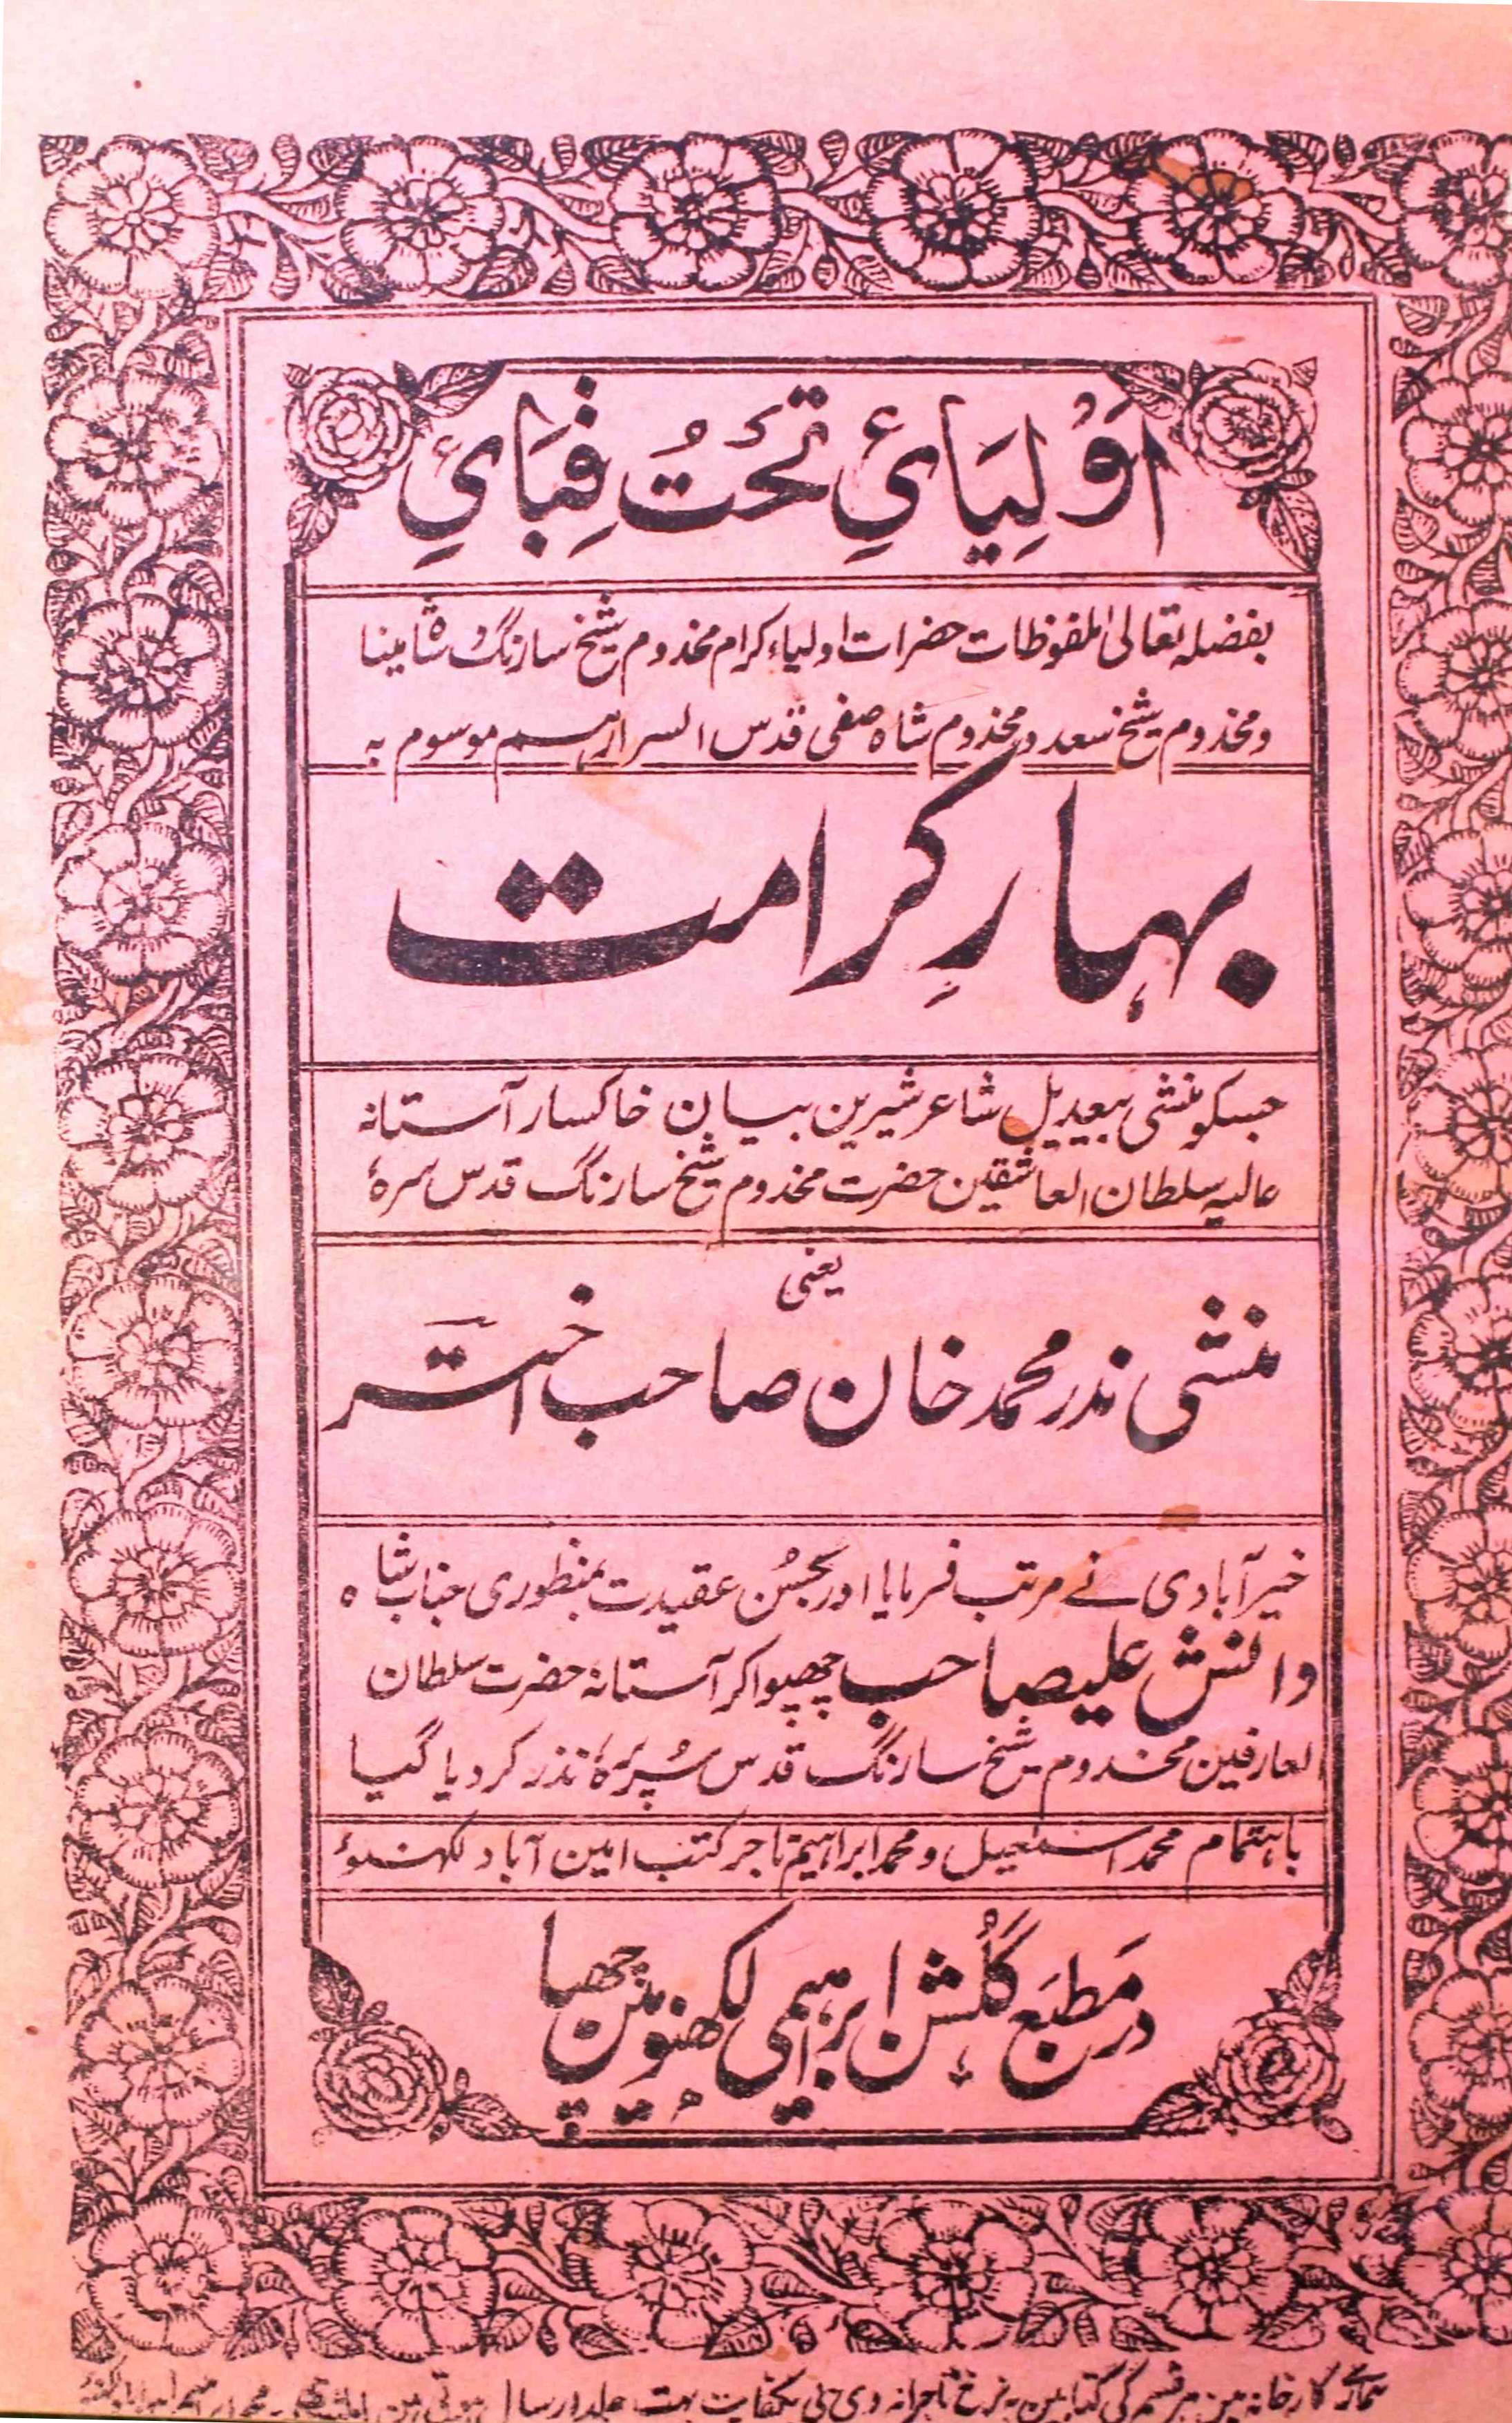 اَوْلِیَائِ تَحْتُ قِبَائِ
بفضلہ تعالیٰ ملفوظات حضرات اولیاء کرام مخدوم شیخ سارنگ و شاہ مینا
و مخدوم شیخ سعد و مخدوم شاہ صفی قدس اسرارہم موسوم بہ
بہارِ کرامت
جسکو منشی بیعدیل شاعر شیرین بیان خاکسار آستانہ
عالیہ سلطان العاشقین حضرت مخدوم شیخ سارنگ قدس سرہٗ
یعنی
منشی نذر محمد خان صاحب اختر
خیرآبادی نے مرتب فرمایا اور بحُسن عقیدت بمنظوری جناب شاہ
دانش علیصاحب چھپوا کر آستانۂ حضرت سلطان
العارفین مخدوم شیخ سارنگ قدس سُرِّہٗ نذر کر دیا گیا
باہتمام محمد اسمٰعیل و محمد ابراہیم تاجر کتب امین آباد لکھنؤ
در مَطبَع گُلشن ابرہیمی لکھنؤ مین چھپا
ہمارے کارخانہ مین ہر قسم کی کتابین بہ نرخ تاجرانہ وی پی بکفایت بہت جلد ارسال ہوتی ہین